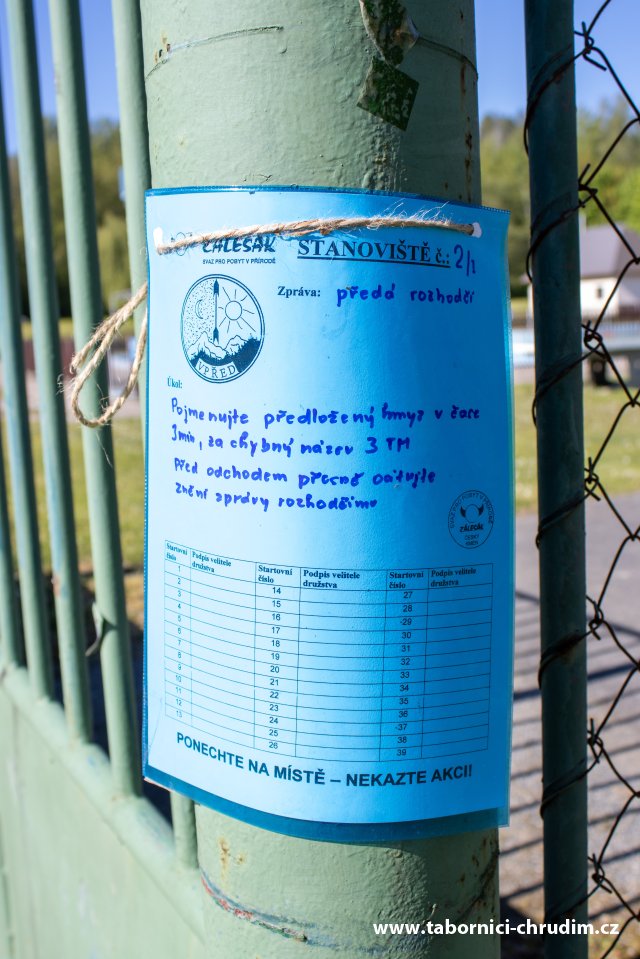 ZÁLESÁK
SVAZ PRO POBYT V PŘÍRODĚ
STANOVIŠTĚ č.: 2/1
Zpráva: předá rozhodčí
VPŘED
Úkol:
Pojmenujte předložený hmyz v čase
3min, za chybný název 3 TM
Před odchodem přesně
znění zprávy rozhodčímu
SVAZ PRO POBYT V PŘÍRODĚ
ZÁLESÁK
Startovní číslo Podpis velitele družstva Startovní číslo Podpis velitele družstva Startovní číslo Podpis velitele družstva
1 14 27
2 15 28
3 16 29
4 17 30
5 18 31
6 19 32
7 20 33
8 21 34
9 22 35
10 23 36
11 24 37
12 25 38
13 26 39
PONECHTE NA MÍSTĚ – NEKAZTE AKCI!
www.tabornici-chrudim.cz